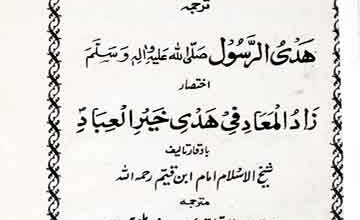 ترجمہ
هَدْىُ الرَّسُوْل صَلَّى اللهُ عَلَيْهِ وَاٰلِهٖ وَسَلَّمَ
اختصار
زَادُ الْمَعَادِ فِیْ هَدْیِ خَیْرِ الْعِبَادِ
شیخ الاسلام امام ابن قیم رحمہ اللہ
مترجمہ